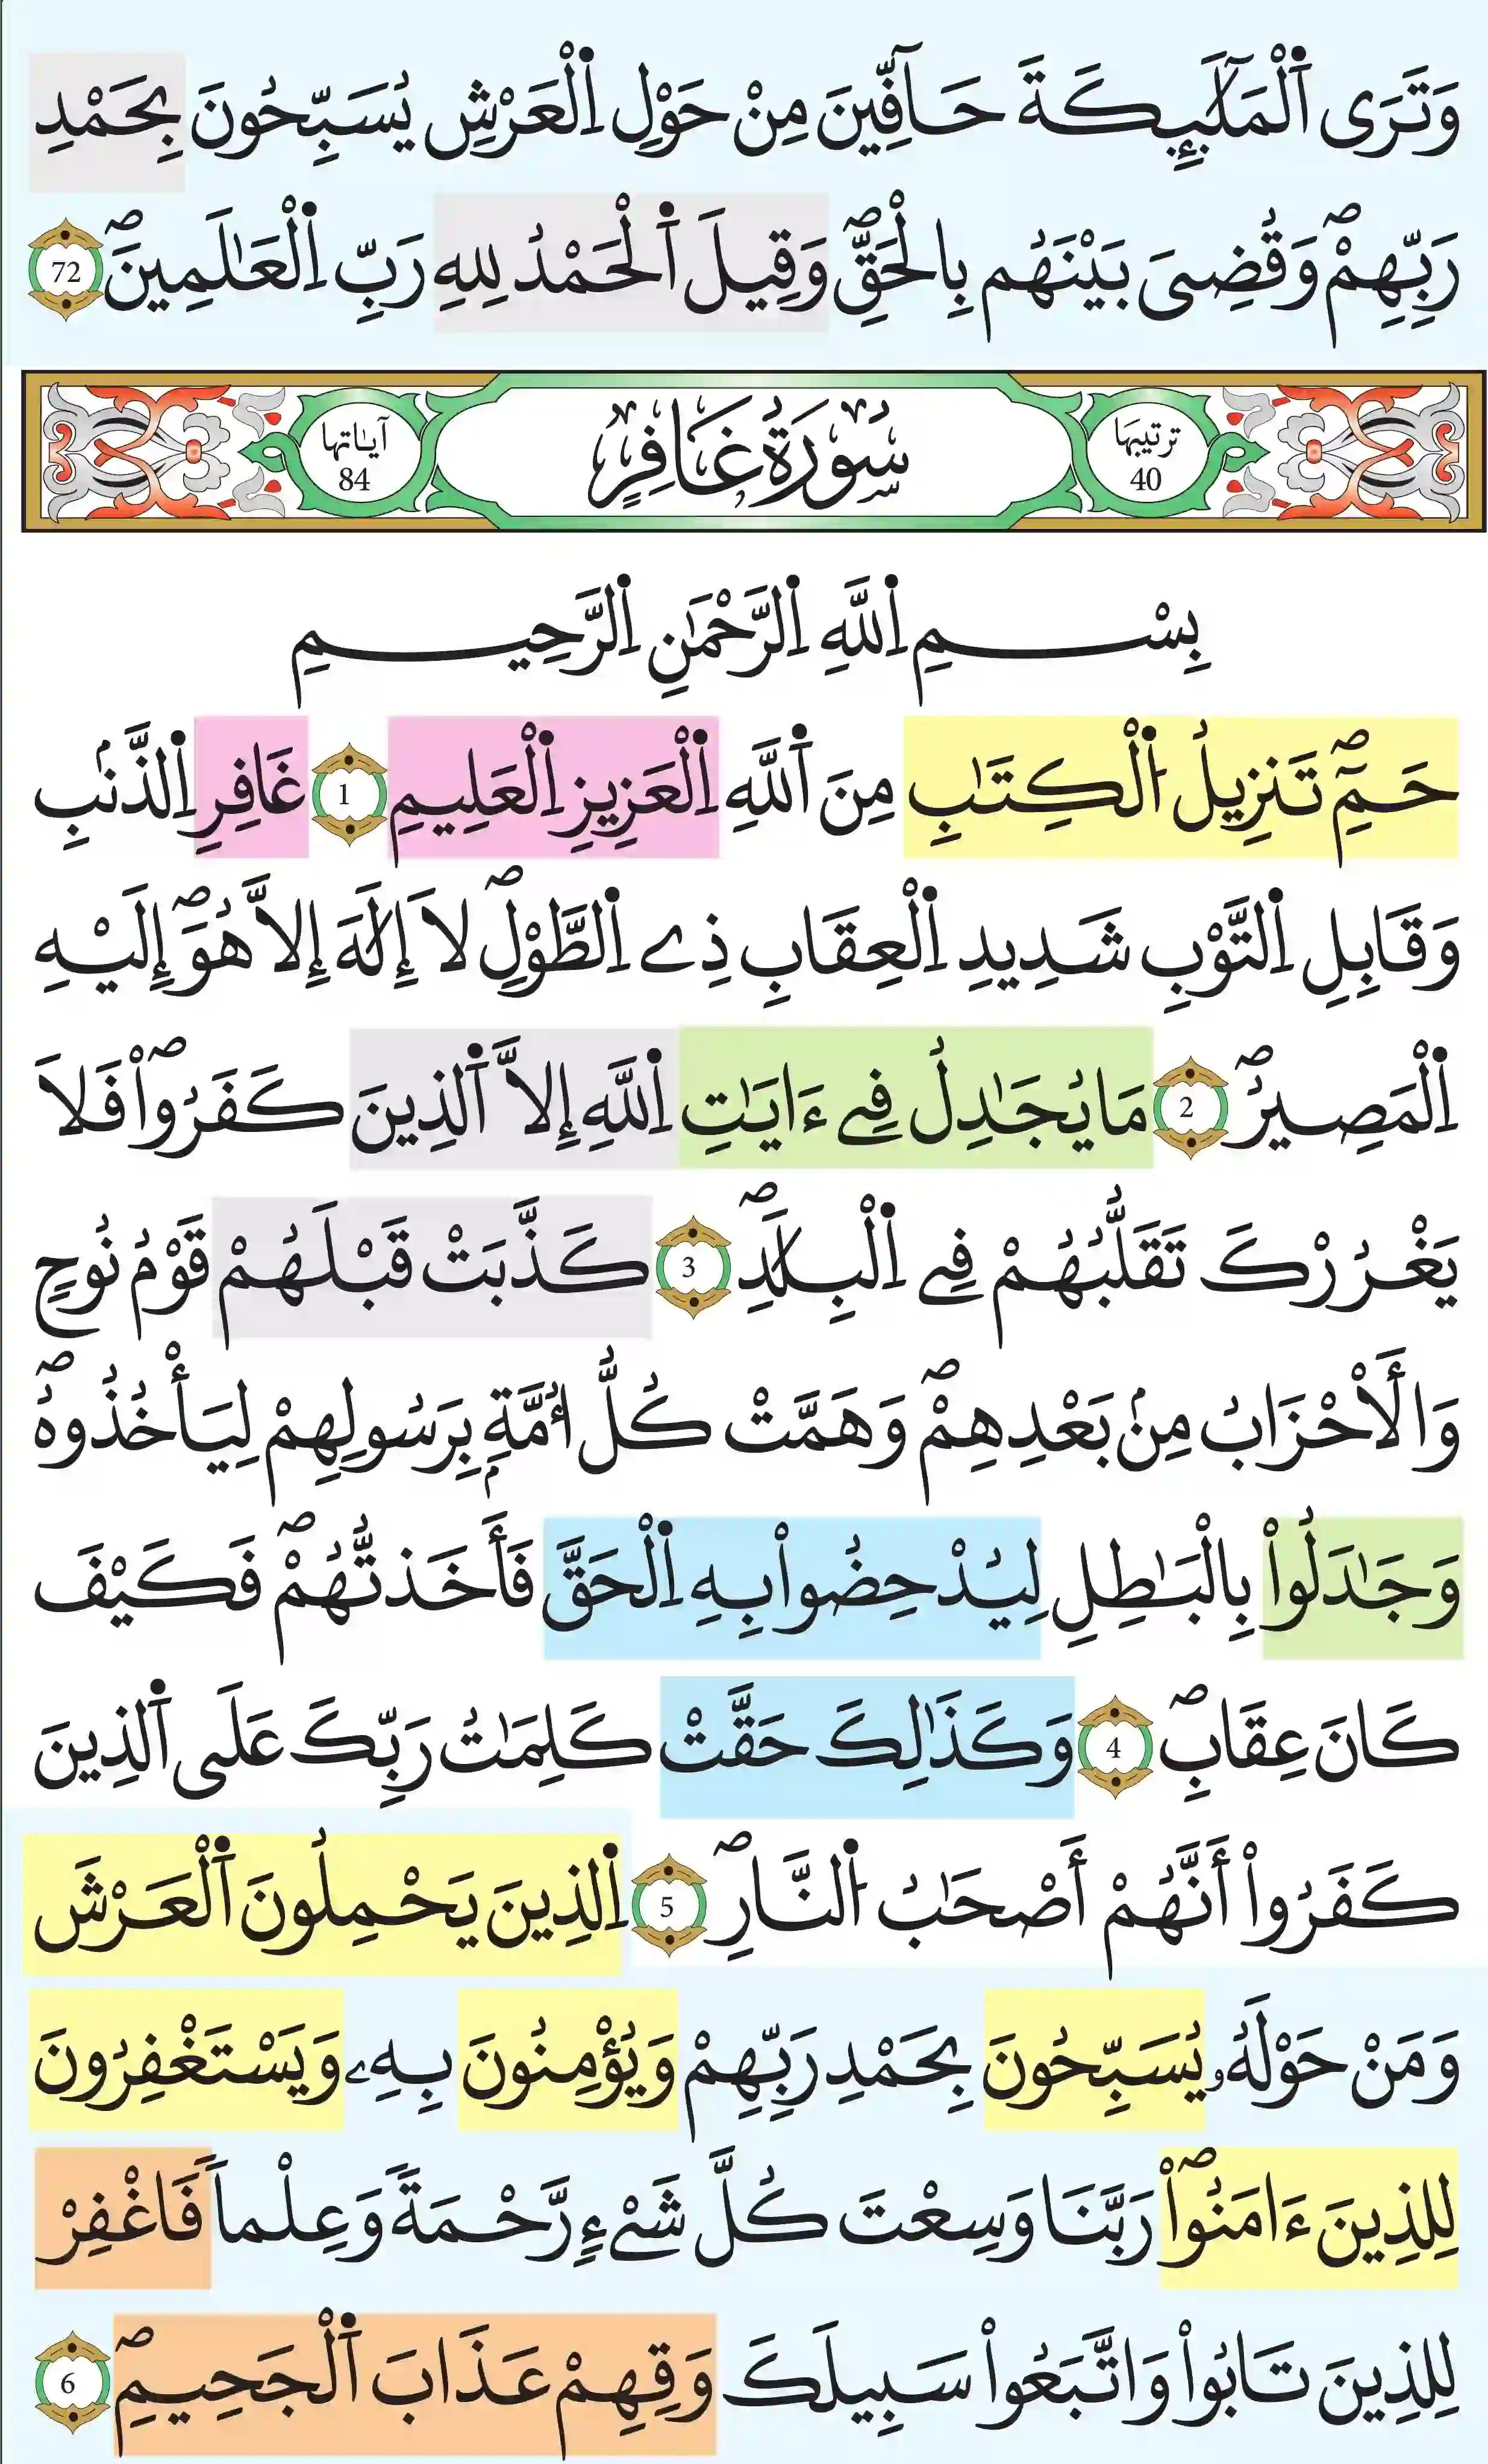 وَتَرَى اَ۬لْمَلَٰٓئِكَةَ حَآفِّينَ مِنْ حَوْلِ اِ۬لْعَرْشِ يُسَبِّحُونَ بِحَمْدِ
رَبِّهِمْۖ وَقُضِيَ بَيْنَهُم بِالْحَقِّۖ وَقِيلَ اَ۬لْحَمْدُ لِلهِ رَبِّ اِ۬لْعَٰلَمِينَۖ 72
ترتيبها 40 سُورَةُ غَافِرٍ آياتها 84
بِسْمِ اِ۬للَّهِ اِ۬لرَّحْمَٰنِ اِ۬لرَّحِيمِ
حَمِٓۖ تَنزِيلُ اُ۬لْكِتَٰبِ مِنَ اَ۬للَّهِ اِ۬لْعَزِيزِ اِ۬لْعَلِيمِ 1 غَافِرِ اِ۬لذَّنۢبِ
وَقَابِلِ اِ۬لتَّوْبِ شَدِيدِ اِ۬لْعِقَابِ ذِے اِ۬لطَّوْلِۖ لَا إِلَٰهَ إِلَّا هُوَۖ إِلَيْهِ
اِ۬لْمَصِيرُۖ 2 مَا يُجَٰدِلُ فِے ءَايَٰتِ اِ۬للَّهِ إِلَّا اَ۬لذِينَ كَفَرُواْۖ فَلَا
يَغْرُرْكَ تَقَلُّبُهُمْ فِے اِ۬لْبِلَٰدِۖ 3 كَذَّبَتْ قَبْلَهُمْ قَوْمُ نُوحٍ
وَالَاحْزَابُ مِنۢ بَعْدِهِمْۖ وَهَمَّتْ كُلُّ أُمَّةِۢ بِرَسُولِهِمْ لِيَأْخُذُوهُۖ
وَجَٰدَلُواْ بِالْبَٰطِلِ لِيُدْحِضُواْ بِهِ اِ۬لْحَقَّ فَأَخَذتُّهُمْۖ فَكَيْفَ
كَانَ عِقَابِۖ 4 وَكَذَٰلِكَ حَقَّتْ كَلِمَٰتُ رَبِّكَ عَلَى اَ۬لذِينَ
كَفَرُواْ أَنَّهُمْ أَصْحَٰبُ اُ۬لنَّارِۖ 5 اِ۬لذِينَ يَحْمِلُونَ اَ۬لْعَرْشَ
وَمَنْ حَوْلَهُۥ يُسَبِّحُونَ بِحَمْدِ رَبِّهِمْ وَيُؤْمِنُونَ بِهِۦ وَيَسْتَغْفِرُونَ
لِلذِينَ ءَامَنُواْۖ رَبَّنَا وَسِعْتَ كُلَّ شَےْءٖ رَّحْمَةٗ وَعِلْماٗ فَاغْفِرْ
لِلذِينَ تَابُواْ وَاتَّبَعُواْ سَبِيلَكَ وَقِهِمْ عَذَابَ اَ۬لْجَحِيمِۖ 6